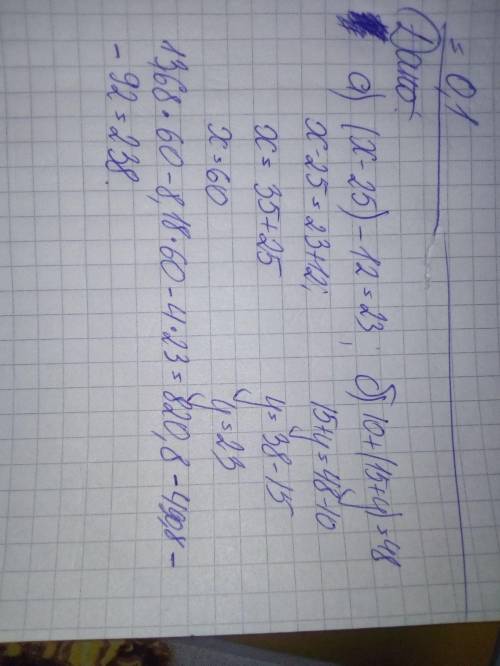 = 0,1
Дано:
а) (x - 25) - 12 = 23; б) 10 + (15 + y) = 48
x - 25 = 23 + 12; 15 + y = 48 - 10
x = 35 + 25 y = 38 - 15
x = 60 y = 23
13,68 · 60 - 8,18 · 60 - 4 · 23 = 820,8 - 490,8 -
- 92 = 238.